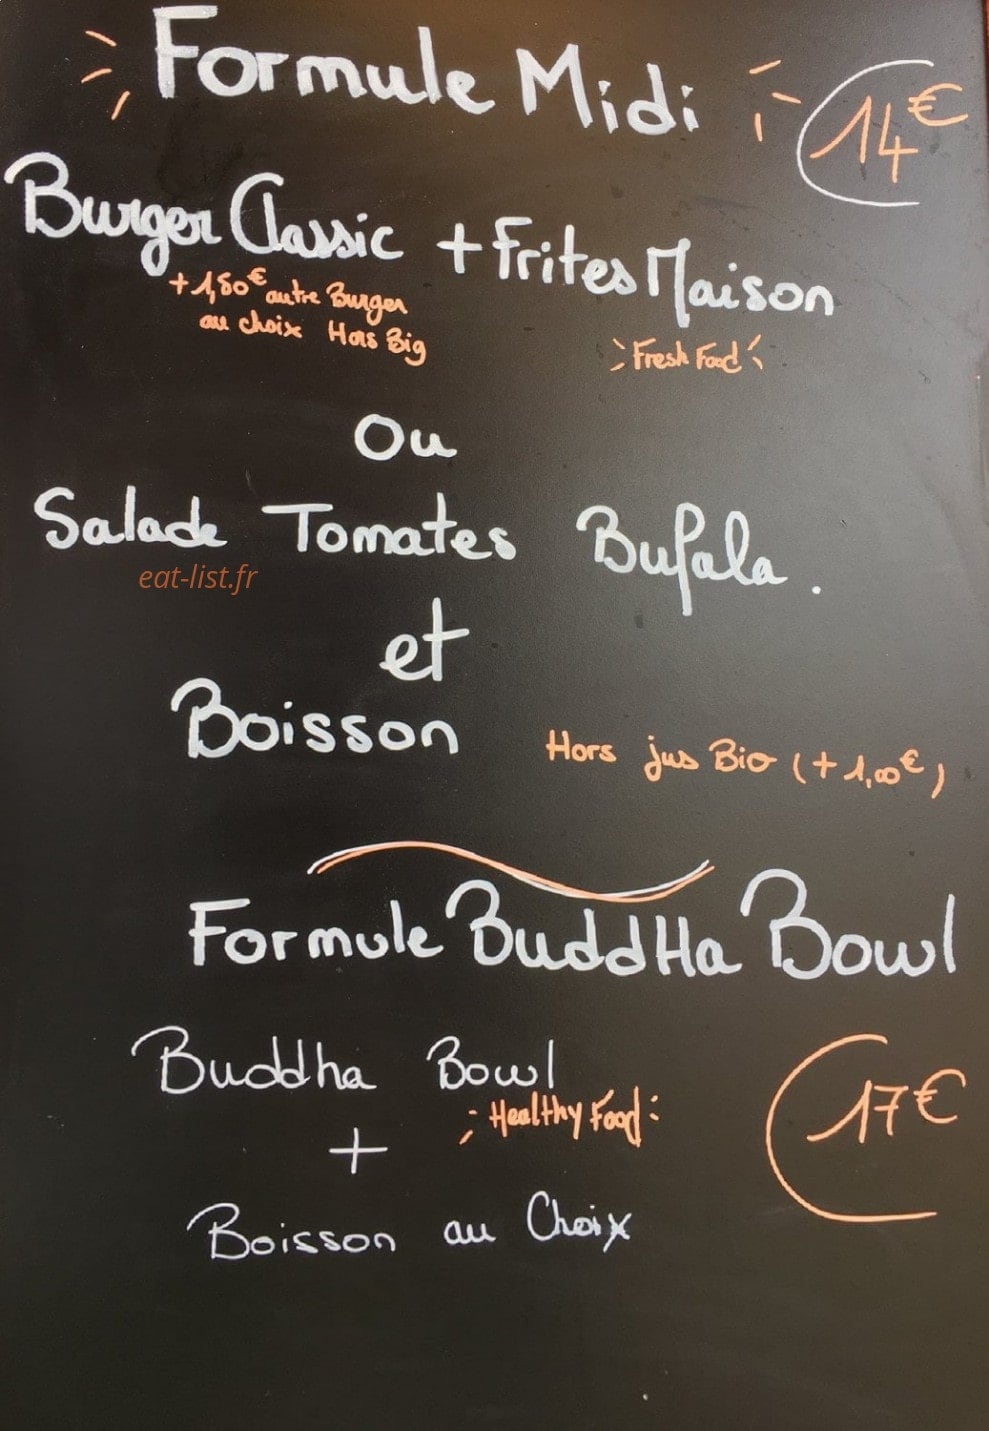 Formule Midi
14€
Burger Classic + Frites Maison
+1,50€ autre Burger
au choix Hors Big
Fresh Food
Ou
Salade Tomates Bufala.
eat-list.fr
et
Boisson
Hors jus Bio (+1,00€)
Formule BuddHa Bowl
Buddha Bowl
Healthy Food
17€
+
Boisson au Choix